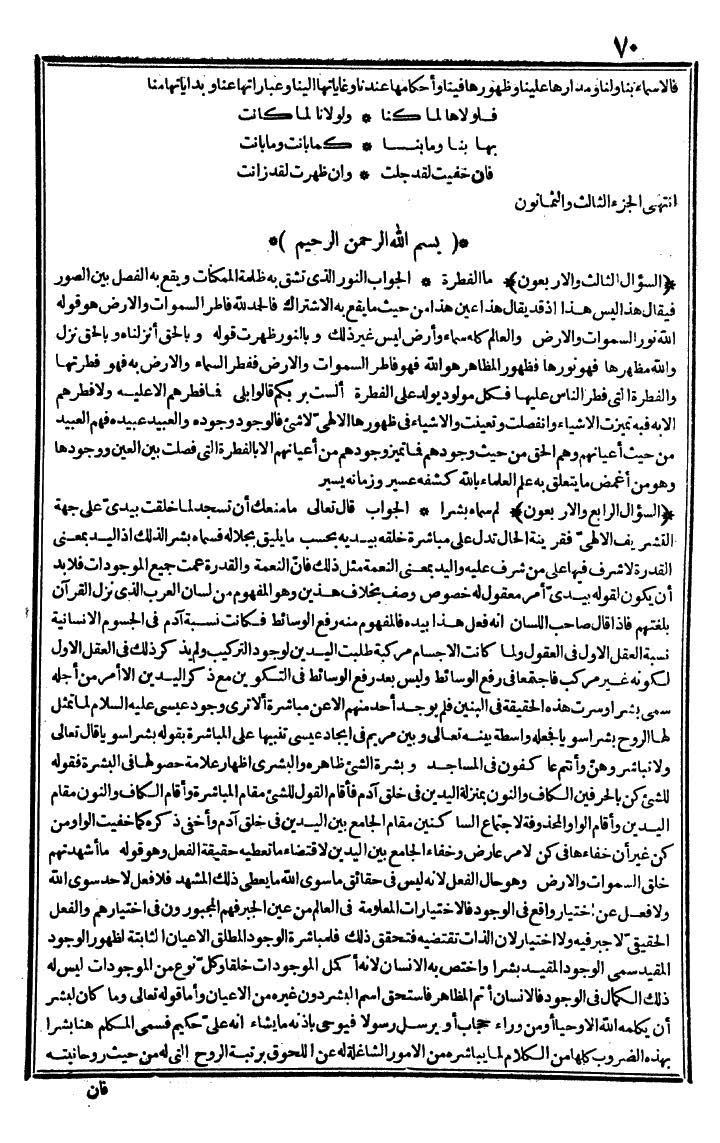 ٧٠
فالاسماء بنا ولنا ومدارها علينا وظهورها فينا وأحكامها عندنا وغاياتها الينا وعباراتها عنا وبداياتها منا
فلولاها لما كنا * ولولانا لما كانت
بها بنا وما بنا * كما بانت وما بانت
فان خفيت لقد جلت * وان ظهرت لقد زانت
انتهى الجزء الثالث والثمانون
*( بسم الله الرحمن الرحيم )*
﴿السؤال الثالث والاربعون﴾ ما الفطرة * الجواب النور الذى تشق به ظلمة الممكنات ويقع به الفصل بين الصور
فيقال هذا ليس هذا اذ قد يقال هذا عين هذا من حيث ما يقع به الاشتراك فالحمد لله فاطر السموات والارض هو قوله
الله نور السموات والارض والعالم كله سماء وأرض ليس غير ذلك وبالنور ظهرت قوله وبالحق أنزلناه وبالحق نزل
والله مظهرها فهو نورها فظهور المظاهر هو الله فهو فاطر السموات والارض ففطر السماء والارض به فهو فطرتها
والفطرة التى فطر الناس عليها فكل مولود يولد على الفطرة ألست بربكم قالوا بلى فما فطرهم الا عليه ولا فطرهم
الا به فبه تميزت الاشياء وانفصلت وتعينت والاشياء فى ظهورها الالهىّ لا شئ فالوجود وجوده والعبيد عبيده فهم العبيد
من حيث أعيانهم وهم الحق من حيث وجودهم فما تميز وجودهم من أعيانهم الا بالفطرة التى فصلت بين العين ووجودها
وهو من أغمض ما يتعلق به علم العلماء بالله كشفه عسير وزمانه يسير
﴿السؤال الرابع والاربعون﴾ لم سماه بشرا * الجواب قال تعالى ما منعك أن تسجد لما خلقت بيدىّ على جهة
التشريف الالهىّ فقرينة الحال تدل على مباشرة خلقه بيديه بحسب ما يليق بجلاله فسماه بشرا لذلك اذ اليد بمعنى
القدرة لا شرف فيها على من شرف عليه واليد بمعنى النعمة مثل ذلك فانّ النعمة والقدرة عمت جميع الموجودات فلا بد
أن يكون لقوله بيدىّ أمر معقول له خصوص وصف بخلاف هذين وهو المفهوم من لسان العرب الذى نزل القرآن
بلغتهم فاذا قال صاحب اللسان انه فعل هذا بيده فالمفهوم منه رفع الوسائط فكانت نسبة آدم فى الجسوم الانسانية
نسبة العقل الاول فى العقول ولما كانت الاجسام مركبة طلبت اليدين لوجود التركيب ولم يذكر ذلك فى العقل الاول
لكونه غير مركب فاجتمعا فى رفع الوسائط وليس بعد رفع الوسائط فى التكوين مع ذكر اليدين الا أمر من أجله
سمى بشرا وسرت هذه الحقيقة فى البنين فلم يوجد أحد منهم الا عن مباشرة ألا ترى وجود عيسى عليه السلام لما تمثل
لها الروح بشرا سويا فجعله واسطة بينه تعالى وبين مريم فى ايجاد عيسى تنبيها على المباشرة بقوله بشرا سويا قال تعالى
ولا تباشروهنّ وأنتم عاكفون فى المساجد وبشرة الشئ ظاهره والبشرى اظهار علامة حصولها فى البشرة فقوله
للشئ كن بالحرفين الكاف والنون بمنزلة اليدين فى خلق آدم فأقام القول للشئ مقام المباشرة وأقام الكاف والنون مقام
اليدين وأقام الواو المحذوفة لاجتماع الساكنين مقام الجامع بين اليدين فى خلق آدم وأخفى ذكره كما خفيت الواو من
كن غير أن خفاءها فى كن لامر عارض وخفاء الجامع بين اليدين لاقتضاء ما تعطيه حقيقة الفعل وهو قوله ما أشهدتهم
خلق السموات والارض وهو حال الفعل لانه ليس فى حقائق ما سوى الله ما يعطى ذلك المشهد فلا فعل لاحد سوى الله
ولا فعل عن اختيار واقع فى الوجود فالاختيارات المعلومة فى العالم من عين الجبر فهم المجبورون فى اختيارهم والفعل
الحقيقىّ لا جبر فيه ولا اختيار لان الذات تقتضيه فتحقق ذلك فلمباشرة الوجود المطلق الاعيان الثابتة لظهور الوجود
المقيد سمى الوجود المقيد بشرا واختص به الانسان لانه أكمل الموجودات خلقا وكلّ نوع من الموجودات ليس له
ذلك الكمال فى الوجود فالانسان أتم المظاهر فاستحق اسم البشر دون غيره من الاعيان وأما قوله تعالى وما كان لبشر
أن يكلمه الله الا وحيا أو من وراء حجاب أو يرسل رسولا فيوحى باذنه ما يشاء انه علىّ حكيم فسمى المكلم هنا بشرا
بهذه الضروب كلها من الكلام لما يباشره من الامور الشاغلة له عن اللحوق برتبة الروح التى له من حيث روحانيته
فان